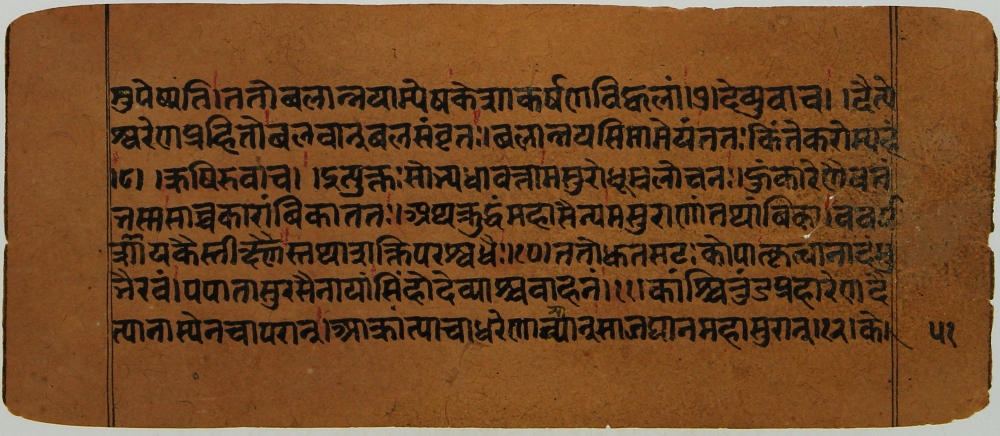 मुपैष्यति।ततो बलान्नयाम्येषकेशाकर्षणविह्वलां।७।देव्युवाच।।दैत्ये
श्वरेणप्रहितोबलवान्बलसंवृतः।बलान्नयसिमामेवंततःकिंतेकरोम्यहं
।८।।ऋषिरुवाच।।इत्युक्तःसोभ्यधावत्तामसुरोधूम्रलोचनः।हुंकारेणैवतं
भस्मसाच्चकारांबिकाततः।अथक्रुद्धंमहासैन्यमसुराणांतथांबिका।ववर्ष
शायकैस्तीक्ष्णैस्तथाशक्तिपरश्वधैः।१०।ततोधुतसटःकोपात्कृत्वानादंसु
भैरवं।पपातासुरसेनायांसिंहोदेव्याश्चवाहनं।११।कांश्चित्तुंडप्रहारेणदै
त्यानास्येनचापरान्।आक्रांत्याचाधरेणान्यान्सजघानमहासुरान्।१२।के।
५१